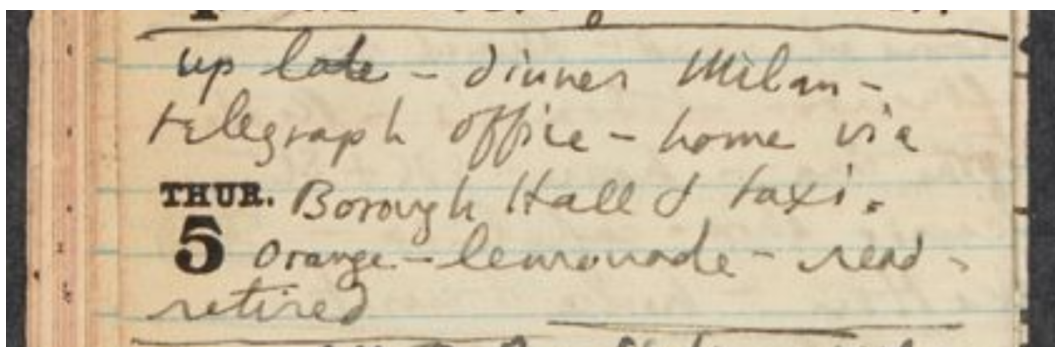 up late - dinner Milan -
telegraph office - home via
THUR. Borough Hall & taxi.
5 orange - lemonade - read -
retired